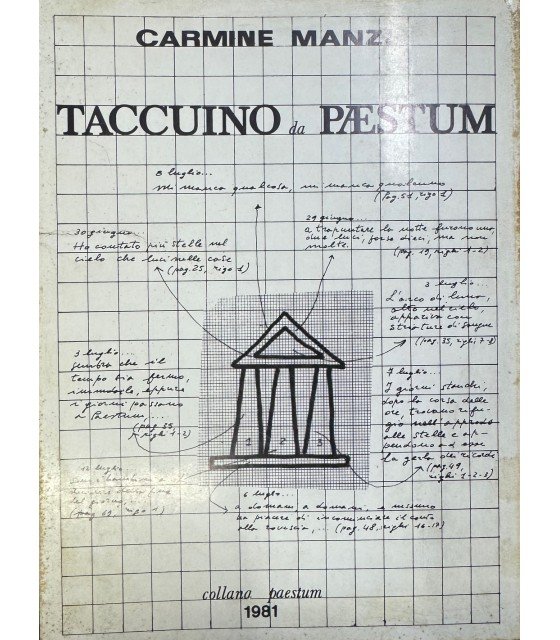 CARMINE MANZ
TACCUINO da PÆSTUM
8 luglio...
mi manca qualcosa, mi manca qualcuno
(pag. 51, rigo 1)
30 giugno...
Ho contato più stelle nel
cielo che luci nelle case
(pag. 25, rigo 1)
29 giugno...
a trapuntare la notte furono uno,
due luci, forse dieci, ma non
molte.
(pag. 19, righi 1-2)
3 luglio...
L'arco di luna,
alto nel cielo,
appariva con
striature di sangue
(pag. 35, righi 7-8)
3 luglio...
sembra che il
tempo sia fermo,
immobile, eppure
i giorni passano
a Paestum,...
(pag. 33,
righi 1-2)
7 luglio...
I giorni stanchi,
dopo la corsa delle
ore, trovano rifu
gio nell'approdo
alle stelle e ap-
pendono ad esse
la gerla dei ricordi
(pag. 49,
righi 1-2-3)
1 2 3
12 luglio
del giorno
(pag. 69, rigo 1)
6 luglio...
a domani, a domani, e nessuno
ha paura di incominciare il conto
alla rovescia,... (pag. 48, righi 16-17)
collana paestum
1981